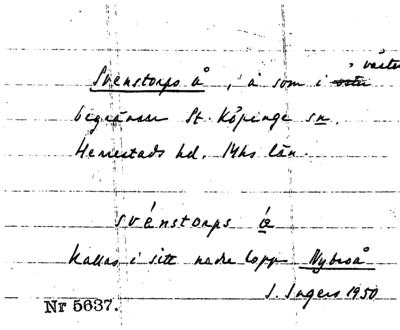 Svenstorps å, å som i väster
begränsar St. Köpinge sn.
Herrestads hd. Mhs län.
svénstorps å
kallas i sitt nedre lopp Nybroå
J. Ingers 1950
Nr 5637.